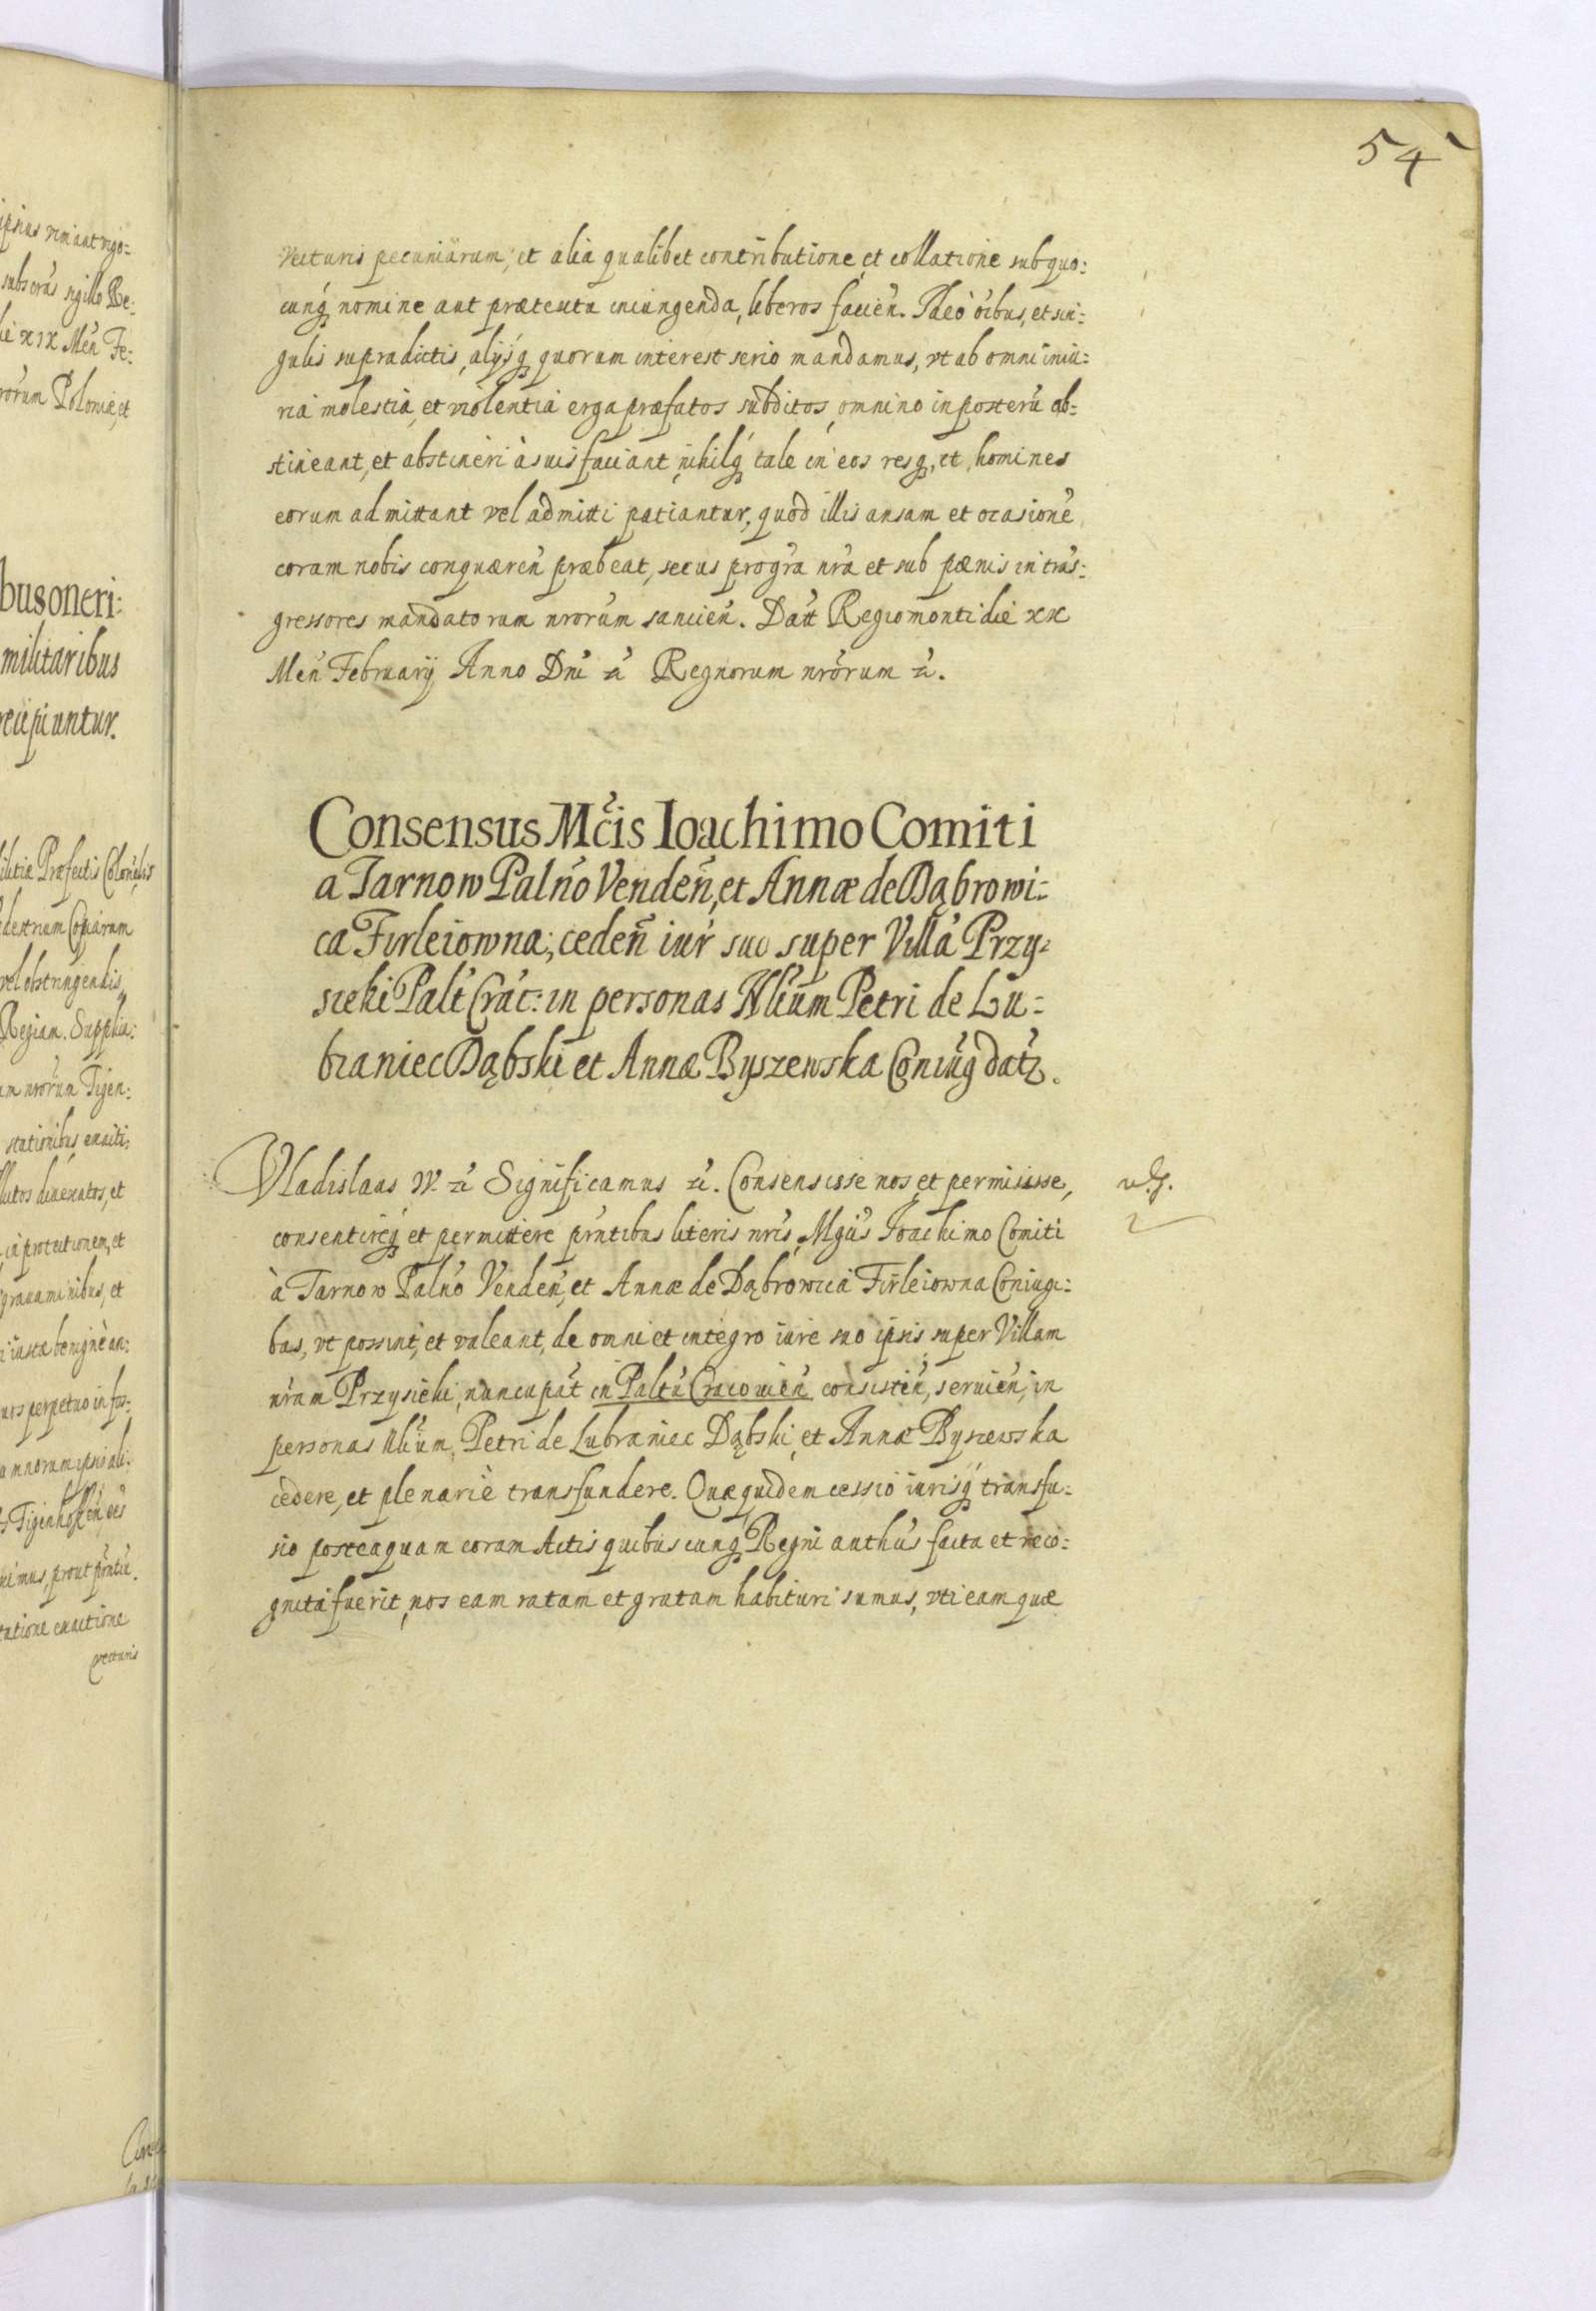 54
vecturis pecuniarum, et alia qualibet contributione, et collatione sub quo:
cunq́ nomine aut prætextu iniungenda, liberos facień. Ideo oĩbus, et sin:
gulis supradictis, alijsq́ quorum interest serio mandamus, vt ab omni iniu:
ria molestia, et violentia erga præfatos subditos, omnino in posterũ ab:
stineant, et abstineri à suis faciant, nihilq́ tale in eos resq, et homines
eorum admittant vel admitti patiantur, quod illis ansam et ocasionẽ
coram nobis conquæreń præbeat, secus pro gr̃a nr̃a et sub pœnis in trãs:
gressores mandatorum nrorũm sanciéń. Dat̃t Regiomonti die xx
Meń February Anno Dnĩ ź Regnorum nrõrum ź.
Consensus Mc̃is Ioachimo Comiti
a Tarnow Palnõ Vendeń, et Annæ de Dąbrowi:
ca Firleiowna; cedeñ iur̃ suo super Villã Przy:
sieki Palt̃ Crac̃: in personas Nliũm Petri de Lu:
braniec Dąbski et Annæ Byszewska Coniug̃ datz.
Vladislaus IV. ź Significamus ź. Consensisse nos, et permisisse,
consentireq́ et permittere pr̃ntibus literis nrĩs, Mgcĩs Ioachimo Comiti
à Tarnow Palnõ Vendeń, et Annæ de Dąbrowica Firleiowna Coniugi:
bus, vt possint, et valeant, de omni et integro iure suo ipsis super Villam
nr̃am Przysieki, nuncupat̃ in Paltũ Cracovień consisteń, servień, in
personas Nliũm, Petri de Lubraniec Dąbski, et Annæ Byszewska
cedere, et plenariè transfundere. Quæquidem cessio iurisq́ transfu:
sio posteaquam coram Actis quibuscunq́ Regni anthĩs facta et reco:
gnita fuerit, nos eam ratam et gratam habituri sumus, vti eamquæ
ipsius
subscrĩs sigillo Re:
die XIX Meń Fe:
rorum Poloniæ, et
bus oneri:
militaribus
recipiuntur.
militiæ Præfectis Colonelis
pedestrium Copiarum
vel obstringendis,
Regiam. Supplica:
um nrõrum Tigen:
stationibus, exacti:
in protectionem, et
gravaminibus, et
iusta benigne an:
nos perpetuo in fos:
himus, prout
exactione
vecturis